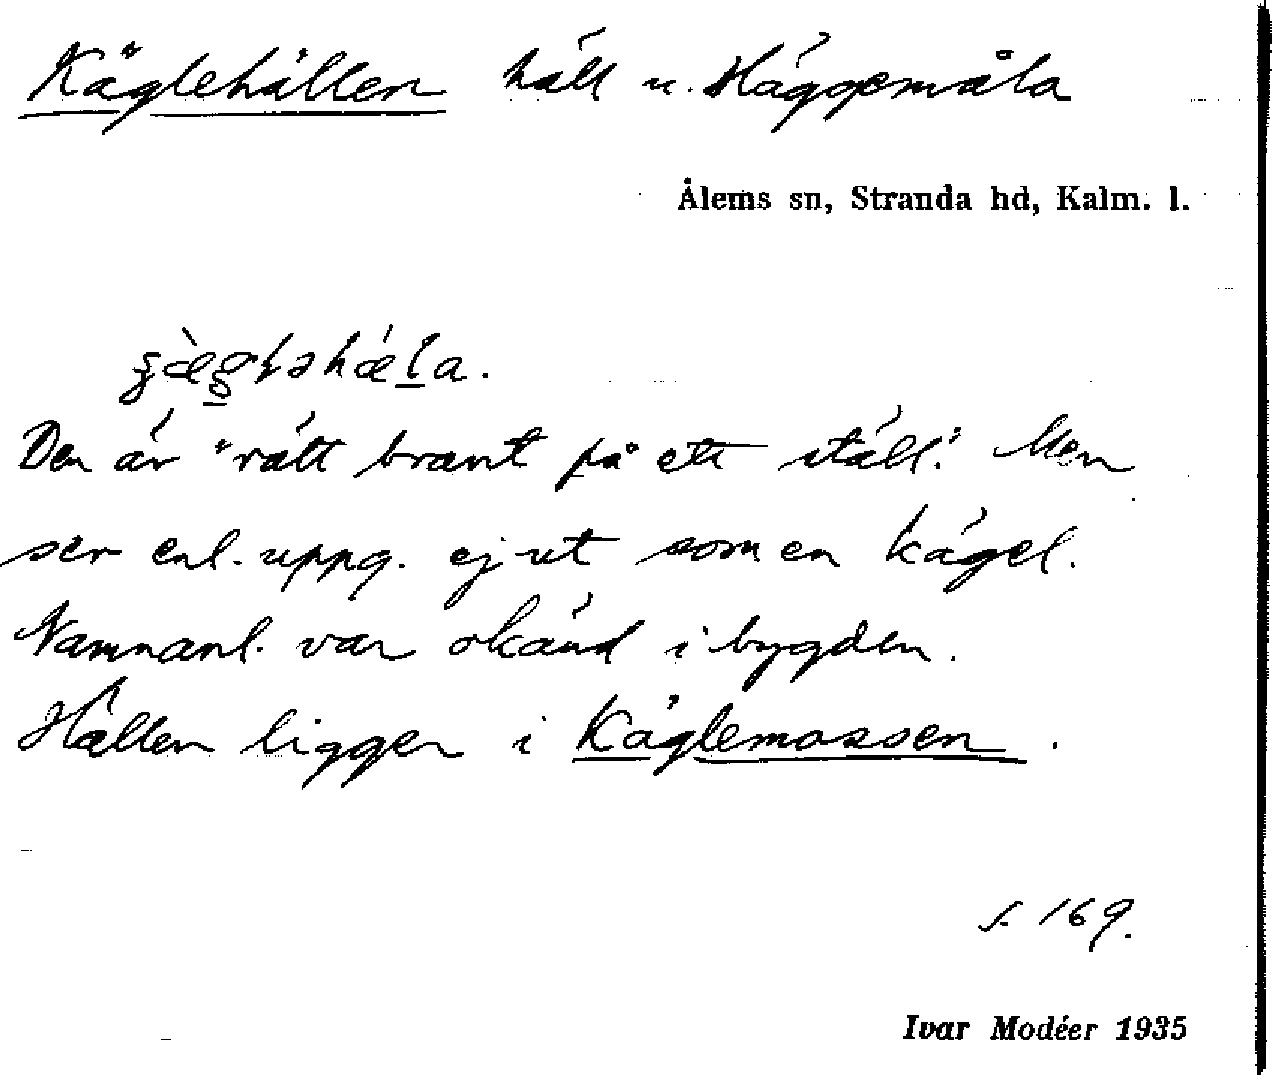 Käglehällen häll u. Häggemåla
Ålems sn, Stranda hd, Kalm. l.
Den är "rätt brant på ett ställ." Men
ser enl. uppg. ej ut som en kägel.
Namnanl. var okänd i bygden.
Hällen ligger i Käglemossen.
s. 169.
Ivar Modéer 1935